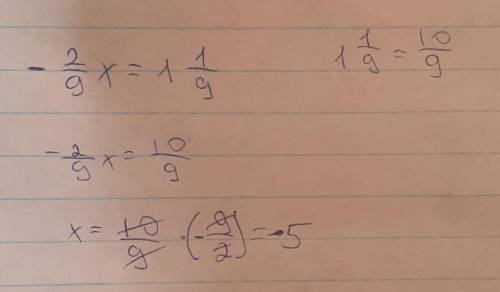 - 2/9 x = 1 1/9
1 1/9 = 10/9
- 2/9 x = 10/9
x = 10/9 · (- 9/2) = -5